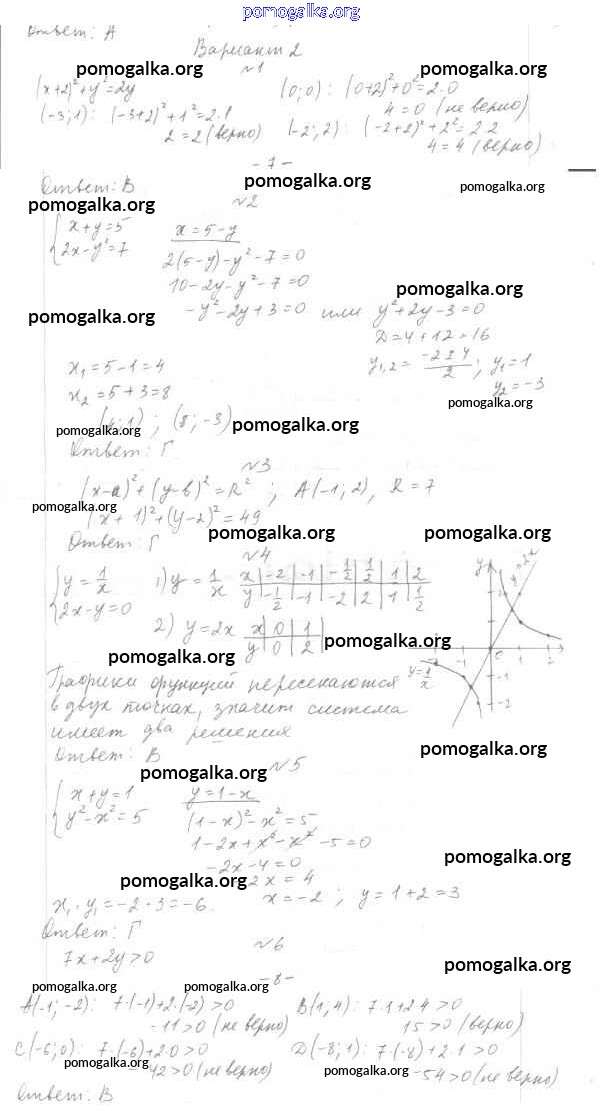 pomogalka.org
Ответ: А
Вариант 2
№1
pomogalka.org pomogalka.org
(x+2)²+y²=2y (0;0): (0+2)²+0²=2·0
4=0 (не верно)
(-3;1): (-3+2)²+1²=2·1 (-2;2): (-2+2)²+2²=2·2
2=2 (верно) 4=4 (верно)
-7-
pomogalka.org pomogalka.org
Ответ: В
pomogalka.org
№2
{x+y=5 x=5-y
2x-y²=7 2(5-y)-y²-7=0
10-2y-y²-7=0
pomogalka.org
-y²-2y+3=0 или y²+2y-3=0
pomogalka.org
D=4+12=16
x₁=5-1=4 y₁,₂=(-2±4)/2; y₁=1
x₂=5+3=8 y₂=-3
pomogalka.org
(4;1); (8;-3)
pomogalka.org pomogalka.org
Ответ: Г
№3
(x-a)²+(y-b)²=R²; A(-1;2), R=7
pomogalka.org
(x+1)²+(y-2)²=49
pomogalka.org pomogalka.org
Ответ: Г
№4
{y=1/x 1) y=1/x x|-2|-1|-1/2|1/2|1|2
2x-y=0 y|-1/2|-1|-2|2|1|1/2
2) y=2x x|0|1
y|0|2
pomogalka.org
pomogalka.org
y y=2x
0 1 2
-1
-1
-2
y=1/x
Графики функций пересекаются
в двух точках, значит система
имеет два решения
pomogalka.org
Ответ: В
pomogalka.org
№5
{x+y=1 y=1-x
y²-x²=5 (1-x)²-x²=5
1-2x+x²-x²-5=0
pomogalka.org
-2x-4=0
pomogalka.org
2x=4
x₁·y₁=-2·3=-6. x=-2; y=1+2=3
Ответ: Г
№6
7x+2y>0
pomogalka.org
-8-
pomogalka.org pomogalka.org
A(-1;-2): 7·(-1)+2·(-2)>0 B(1;4): 7·1+2·4>0
-11>0 (не верно) 15>0 (верно)
C(-6;0): 7·(-6)+2·0>0 D(-8;1): 7·(-8)+2·1>0
pomogalka.org pomogalka.org
42>0 (не верно) -54>0 (не верно)
Ответ: В